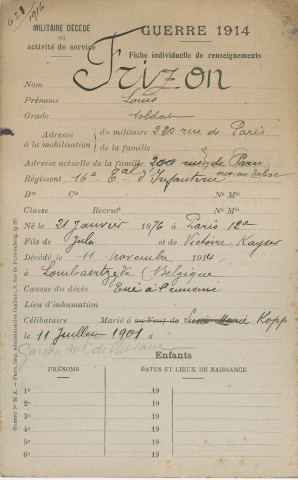 1916
MILITAIRE DÉCÉDÉ
en
activité de service
GUERRE 1914
Fiche individuelle de renseignements
Nom Frizon
Prénoms Louis
Grade Soldat
Adresse à la mobilisation du militaire 220 rue de Paris
de la famille
Adresse actuelle de la famille 200 rue de Paris
au Tabac
Régiment 16e Bal d'Infanterie
Bon Cie No Mle
Classe Recrut No Mle
Né le 21 Janvier 1876 à Paris 12e
Fils de Jules et de Victoire Kayser
Décédé le 11 novembre 1914
à Lombaertzyde (Belgique)
Causes du décès Tué à l'ennemi
Lieu d'inhumation
Célibataire Marié à ou Veuf de Marie Kopp
le 11 Juillet 1901 à
Garçon Md de
Enfants
PRÉNOMS DATES ET LIEUX DE NAISSANCE
1o 19
2o 19
3o 19
4o 19
5o 19
6o 19